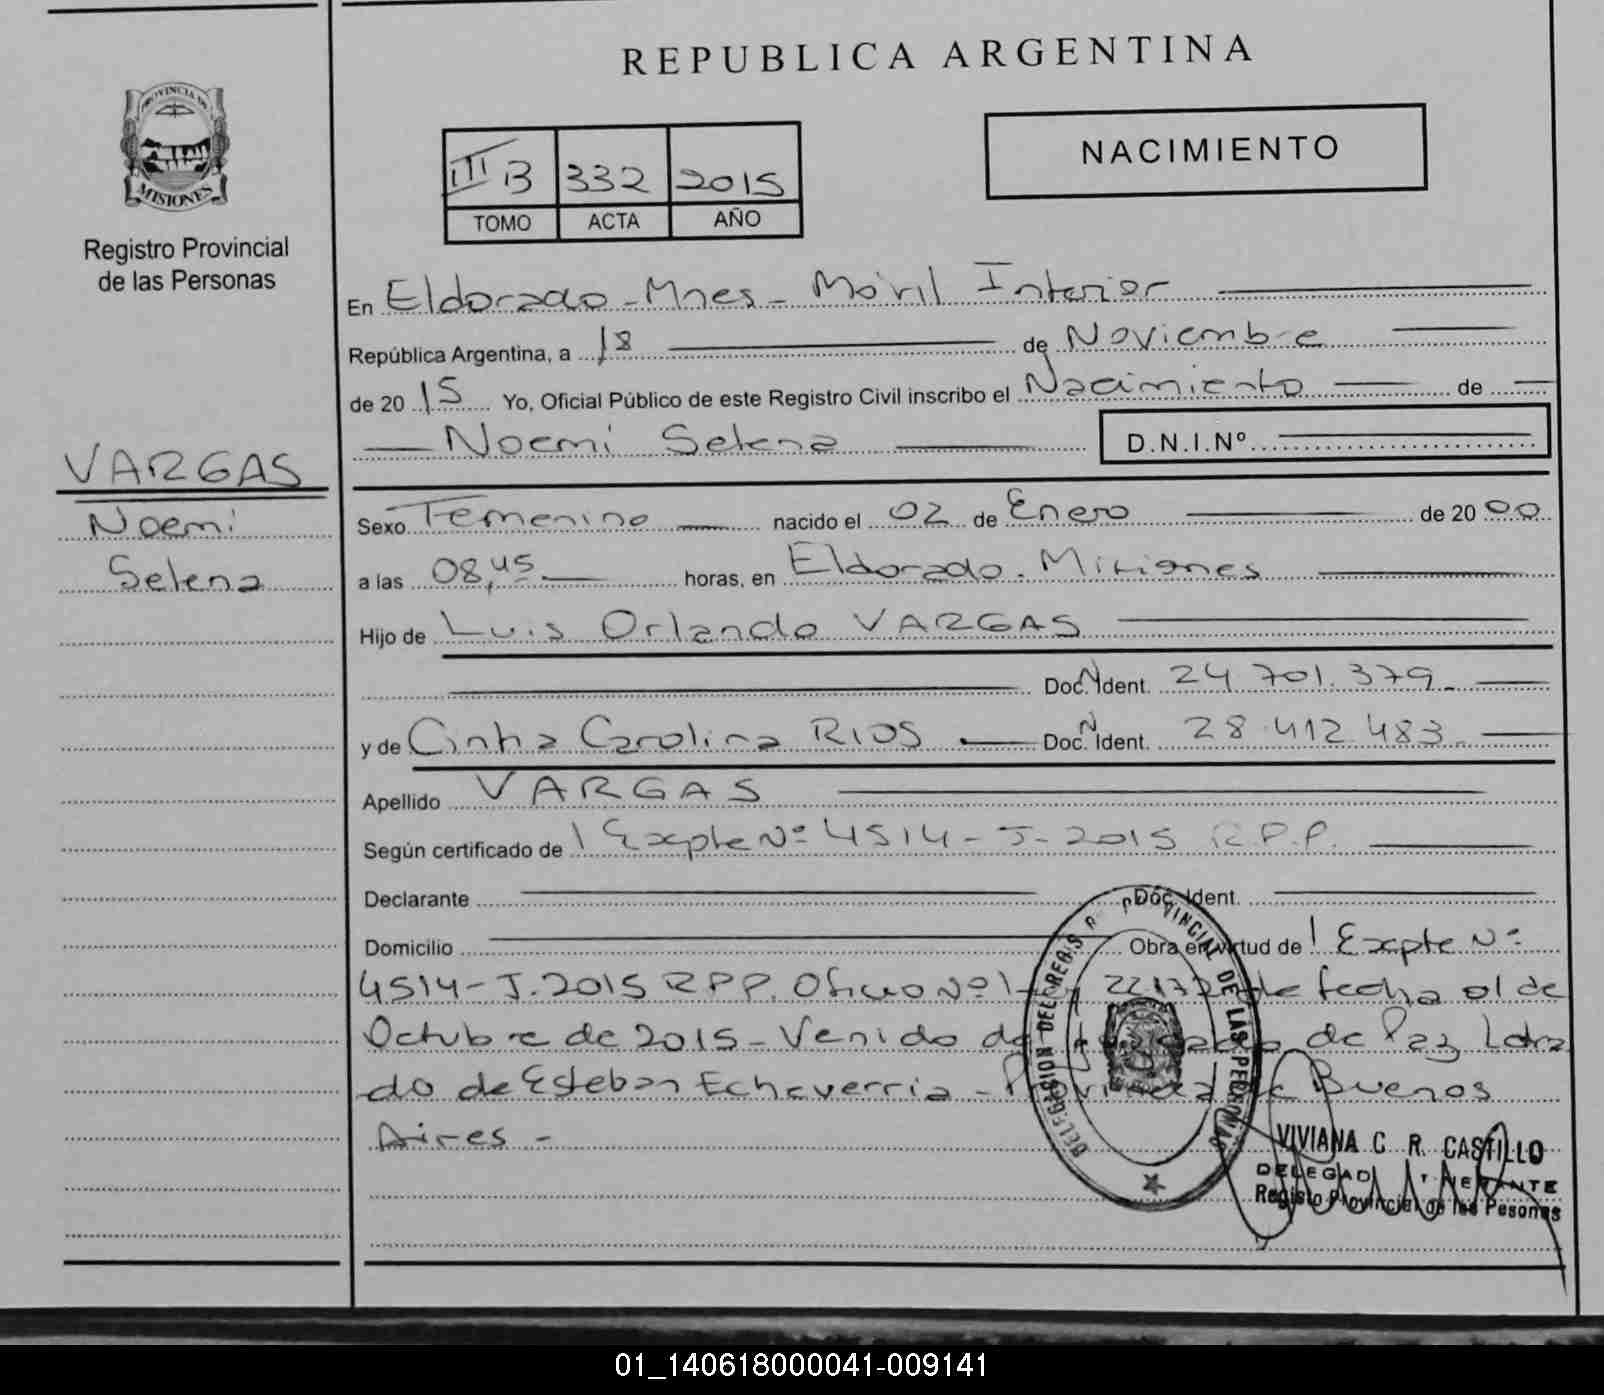 REPUBLICA ARGENTINA
PROVINCIA DE
MISIONES
Registro Provincial
de las Personas
NACIMIENTO
III B 332 2015
TOMO ACTA AÑO
En Eldorado - Mnes - Móvil Interior
República Argentina, a 18 de Noviembre
de 2015 Yo, Oficial Público de este Registro Civil inscribo el Nacimiento de
Noemi Selena D.N.I.Nº
VARGAS
Noemi
Selena
Sexo Femenino nacido el 02 de Enero de 2000
a las 08,45 horas, en Eldorado. Misiones
Hijo de Luis Orlando VARGAS
Doc. Ident. 24.701.379
y de Cintia Carolina RIOS Doc. Ident. 28.412.483
Apellido VARGAS
Según certificado de 1 Expte Nº 4514-J-2015 R.P.P.
Declarante Doc. Ident.
Domicilio Obra en virtud de 1 Expte Nº
4514-J-2015 RPP. Oficio Nº de fecha 01 de
Octubre de 2015 - Venido de Paz Letra
do de Esteban Echeverria - Buenos
Aires -
PROVINCIAL DE LAS PERSONAS
DELEGACION DEL
VIVIANA C. R. CASTILLO
Registo Provincial de las Pesonas
01_140618000041-009141